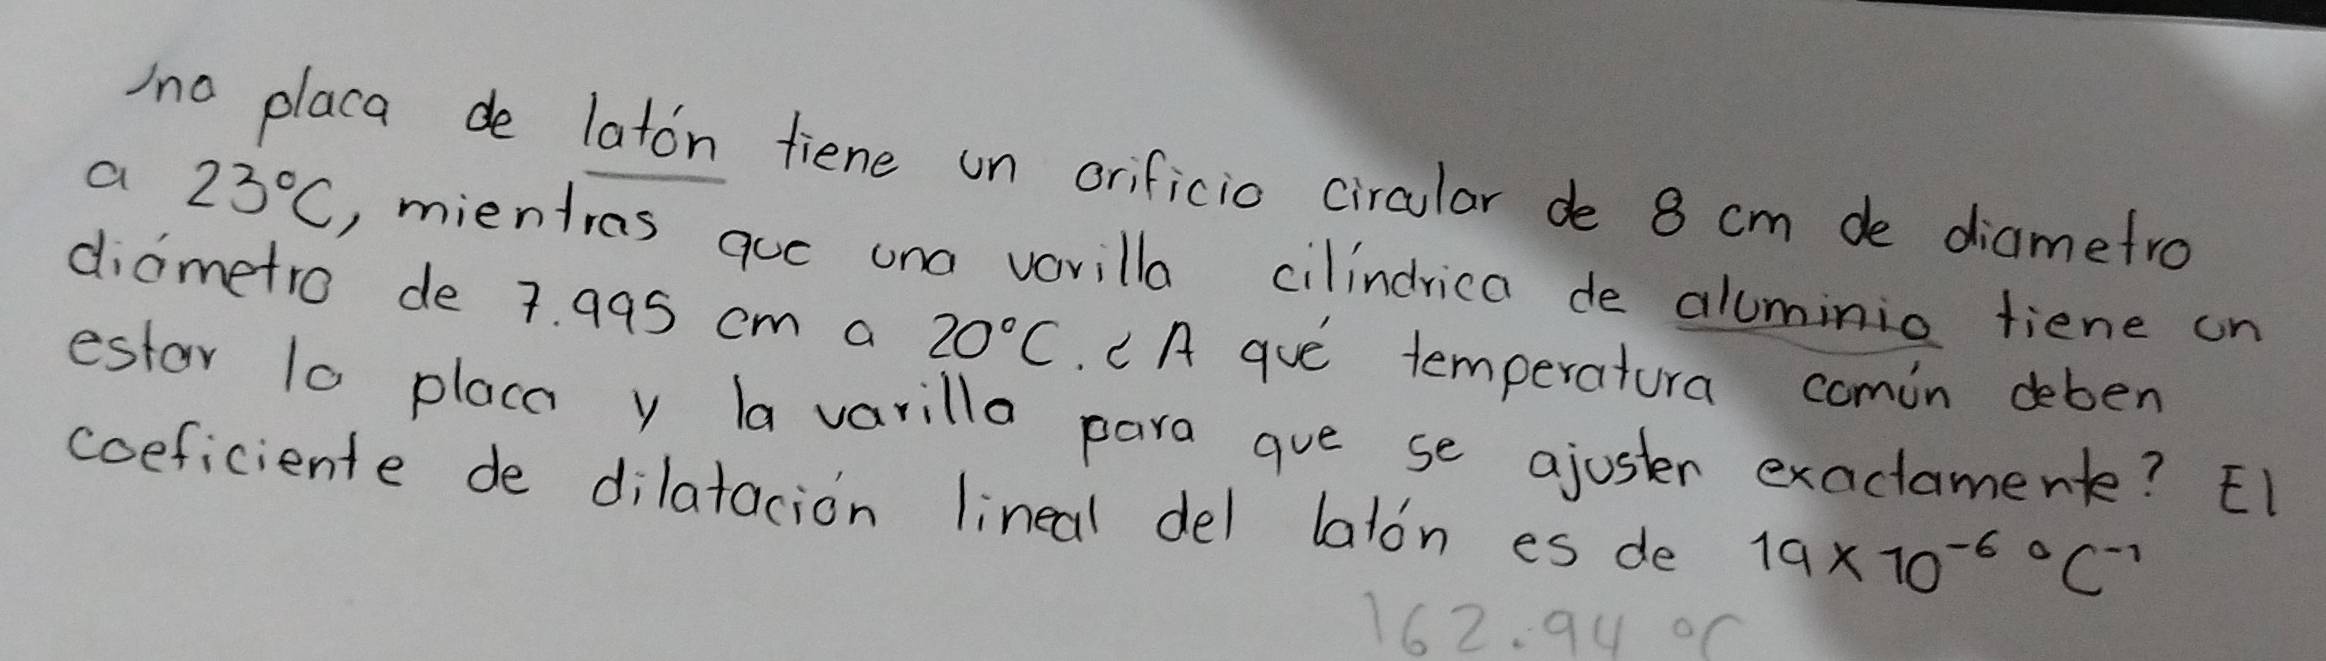 una placa de latón tiene un orificio circular de 8 cm de diametro
a 23°C, mientras que una varilla cilíndrica de aluminio tiene un
diámetro de 7.995 cm a 20°C. ¿A qué temperatura común deben
estar la placa y la varilla para que se ajusten exactamente? El
coeficiente de dilatación lineal del latón es de 19x10⁻⁶ °C⁻¹
162.94 °C